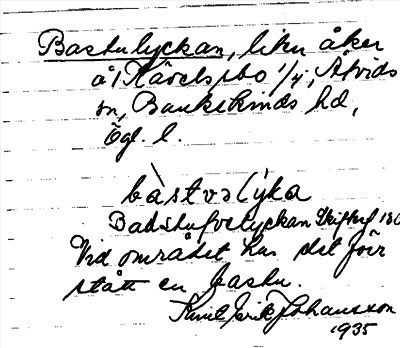 Bastulyckan, liten åker
å Håvelsbo 1/4, Åtvids
sn, Bankekinds hd,
Ögl. l.
bàstvəlỳka
Badstufvelyckan Skifteskarta
Vid området har det förr
stått en bastu.
Karl Erik Johansson
1935